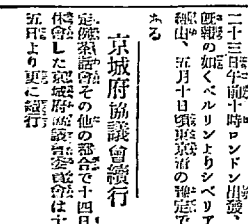 二十三日午前十時ロンドン出發、
既報の如くベルリンよりシベリア
經由、五月十日頃東京着の豫定で
ある
京城府協議會續行
定例茶話會その他の都合で十四日
休會した京城府協議會委員會は十
五日より更に續行